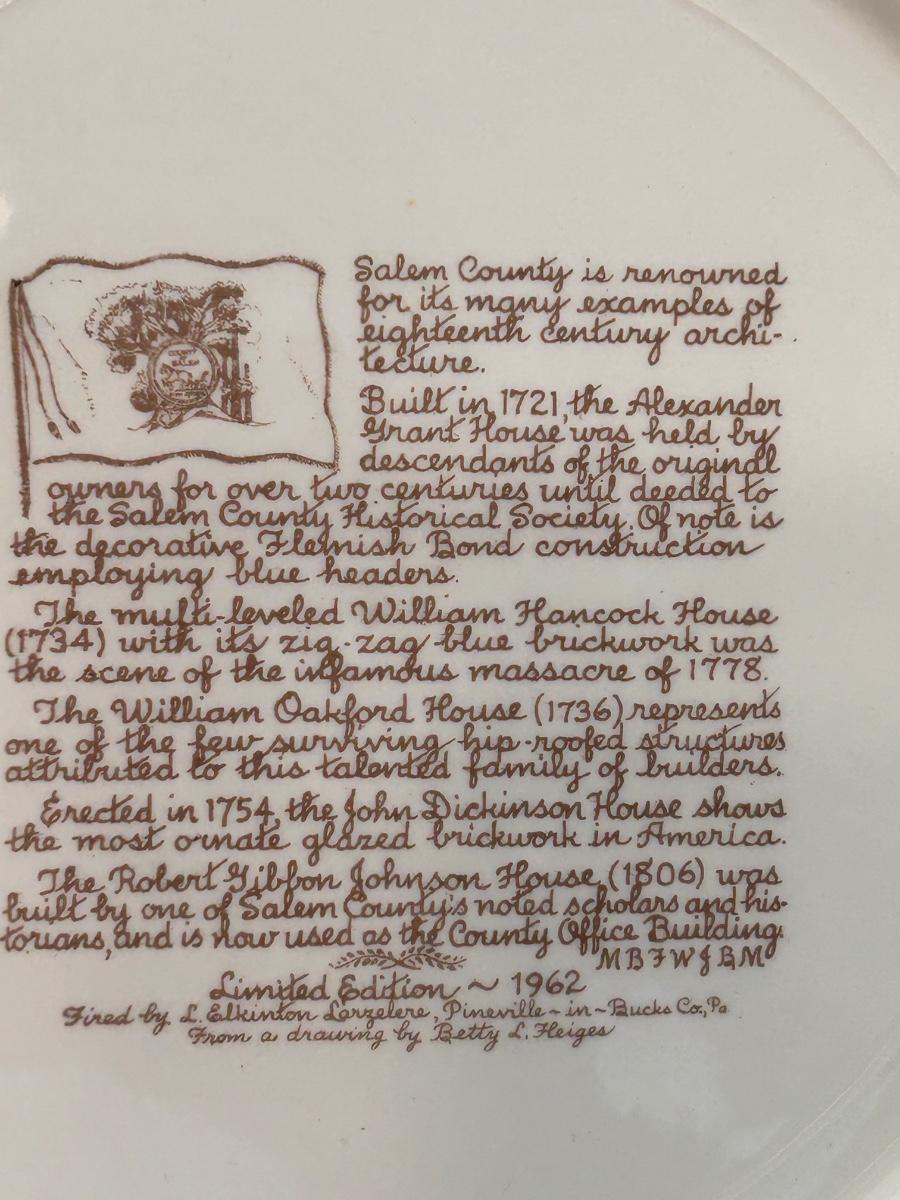 Salem County is renowned
for its many examples of
eighteenth century archi-
tecture.
Built in 1721, the Alexander
Grant House was held by
descendants of the original
owners for over two centuries until deeded to
the Salem County Historical Society. Of note is
the decorative Flemish Bond construction
employing blue headers.
The multi-leveled William Hancock House
(1734) with its zig-zag blue brickwork was
the scene of the infamous massacre of 1778.
The William Oakford House (1736) represents
one of the few surviving hip-roofed structures
attributed to this talented family of builders.
Erected in 1754, the John Dickinson House shows
the most ornate glazed brickwork in America.
The Robert Gibbon Johnson House (1806) was
built by one of Salem County's noted scholars and his-
torians, and is now used as the County Office Building.
MBFWJBM
Limited Edition ~ 1962
Fired by L. Elkinton Larzelere, Pineville-in-Bucks Co., Pa
From a drawing by Betty L. Heiges